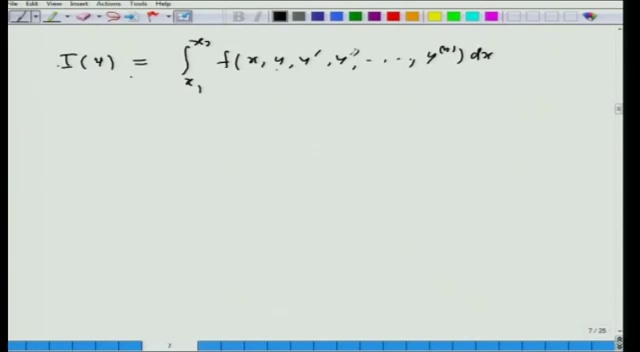 File Edit View Insert Actions Tools Help
I(y) = ∫_{x₁}^{x₂} f(x, y, y', y'', ----, y^{(n)}) dx
7 / 25
7